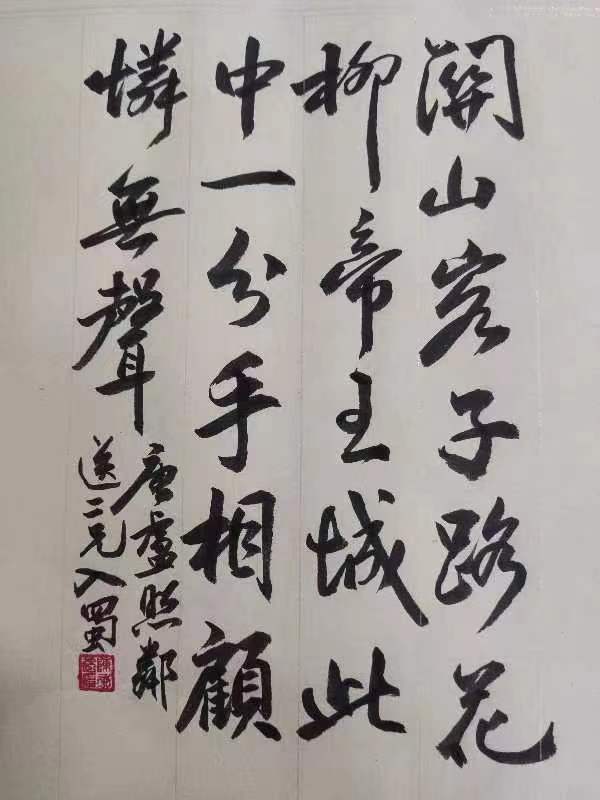 關山客子路花
柳帝王城此
中一分手相顧
憐無聲
唐盧照鄰
送二兄入蜀